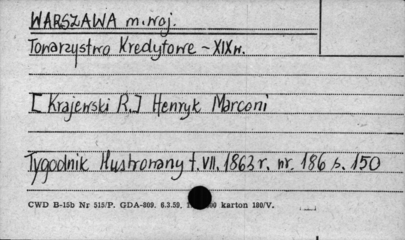 WARSZAWA m. woj.
Towarzystwo Kredytowe - XIX w.
[Krajewski R.] Henryk Marconi
Tygodnik Illustrowany t. VII. 1863 r. nr. 186 s. 150
CWD B-15b Nr 515/P. GDA-809. 6.3.59. karton 180/V.